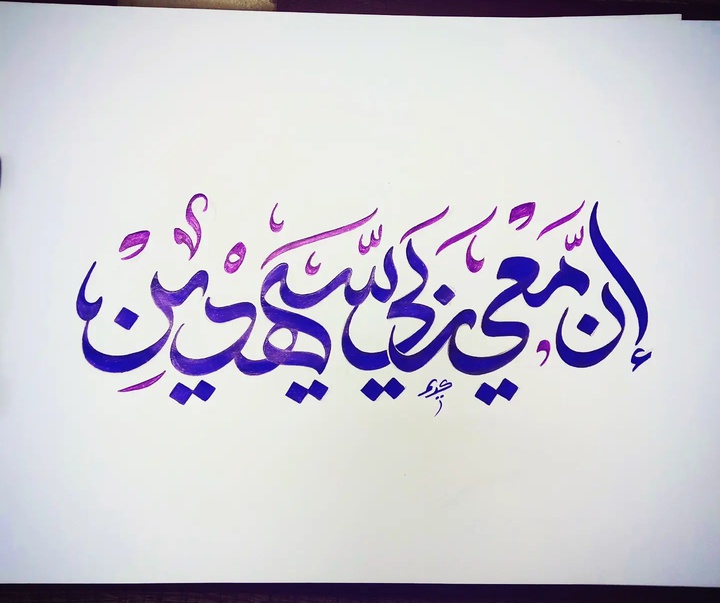 إن معي ربي سيهدين